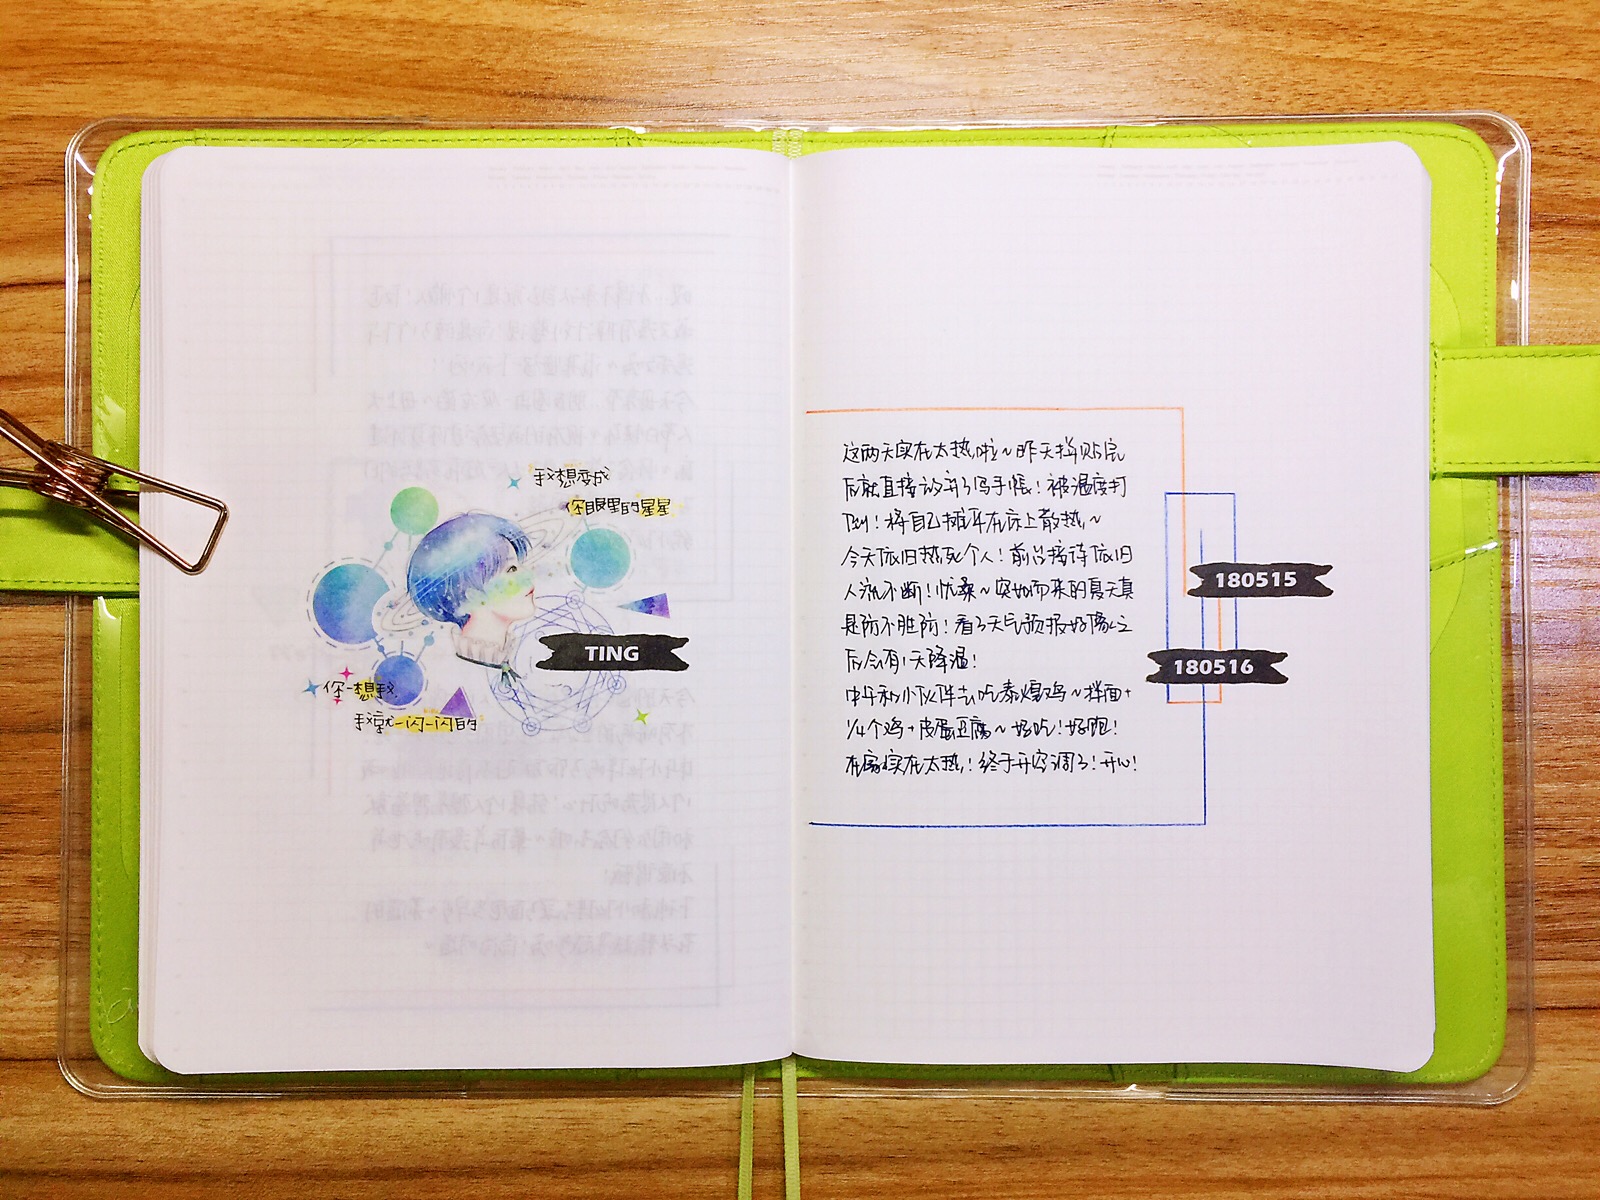 我想变成
你眼里的星星
TING
你一想我
我就一闪一闪的
这两天实在太热啦~昨天拼贴完
后就直接放弃了写手帐!被温度打
倒!将自己摊平在床上散热~
今天依旧热死个人!前台接待依旧
人流不断!忧桑~突如而来的夏天真
是防不胜防!看了天气预报好像之
后会有1天降温!
中午和小伙伴去吃泰爆鸡~拌面+
1/4个鸡+皮蛋豆腐~好吃!好饱!
在家实在太热!终于开空调了!开心!
180515
180516